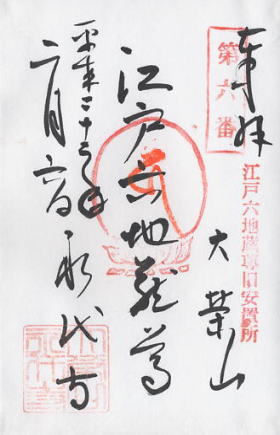 奉拝
第六番
江戸六地蔵尊旧安置所
大榮山
江戸六地蔵尊
永代寺
平成二十三年
二月六日